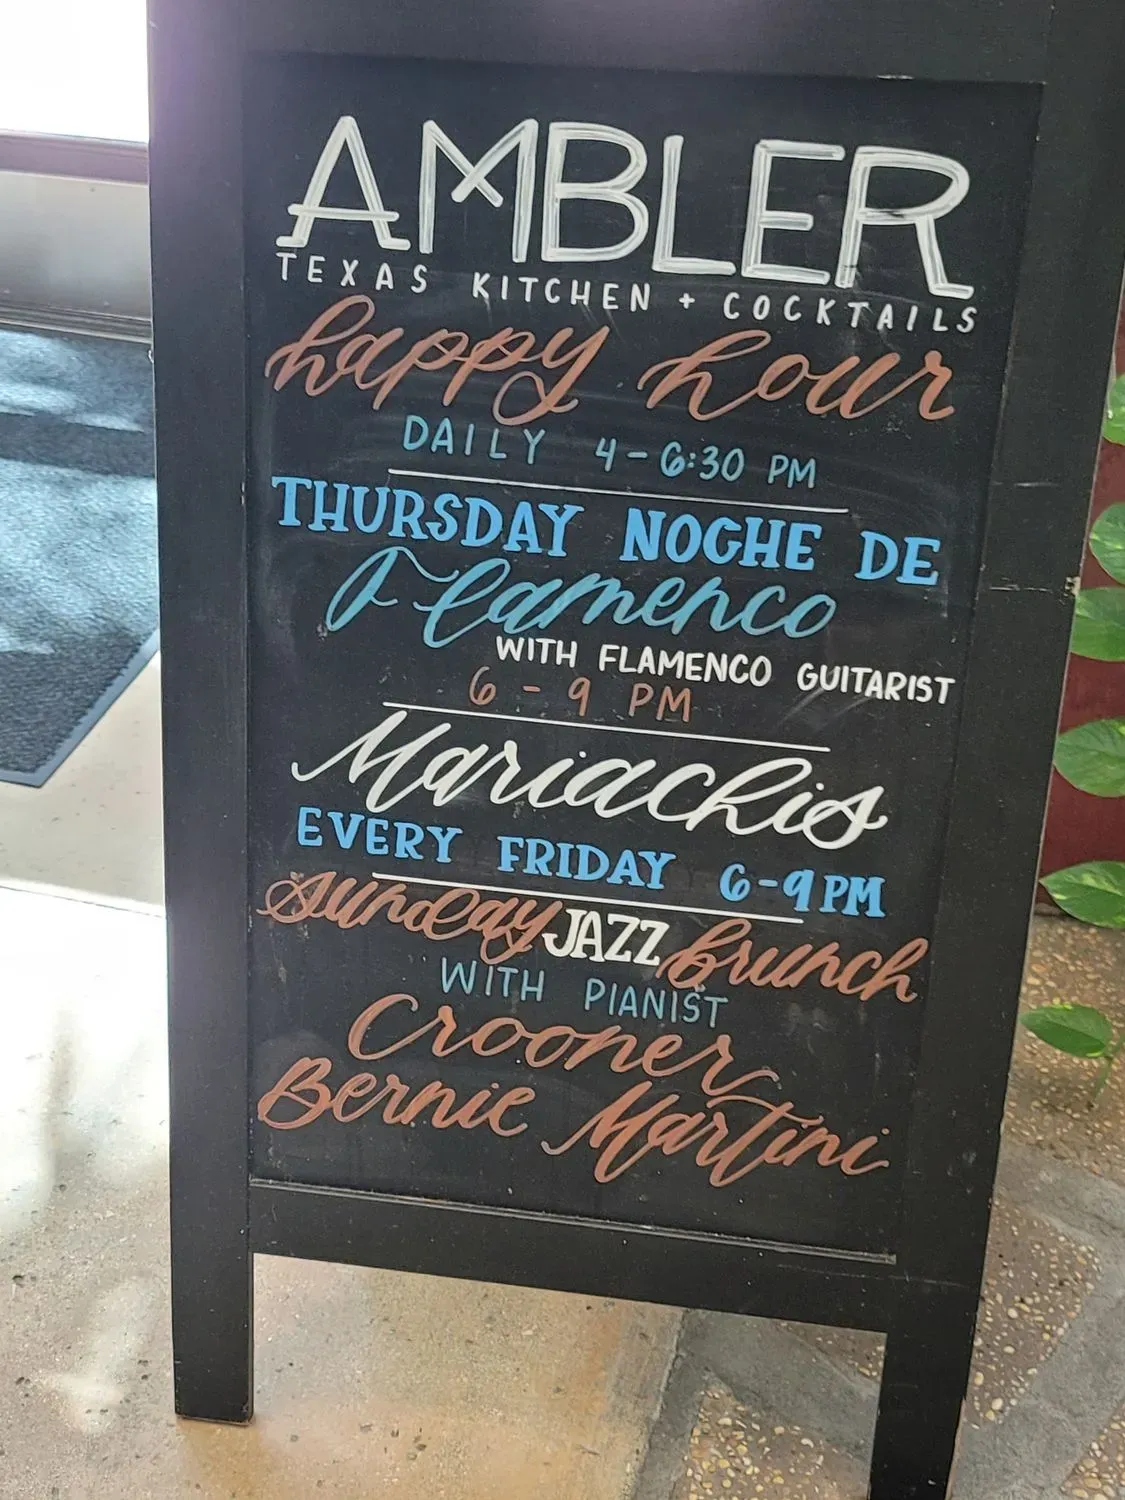 AMBLER
TEXAS KITCHEN + COCKTAILS
happy hour
DAILY 4-6:30 PM
THURSDAY NOCHE DE
Flamenco
WITH FLAMENCO GUITARIST
6 - 9 PM
Mariachis
EVERY FRIDAY 6-9 PM
sunday JAZZ brunch
WITH PIANIST
Crooner
Bernie Martini